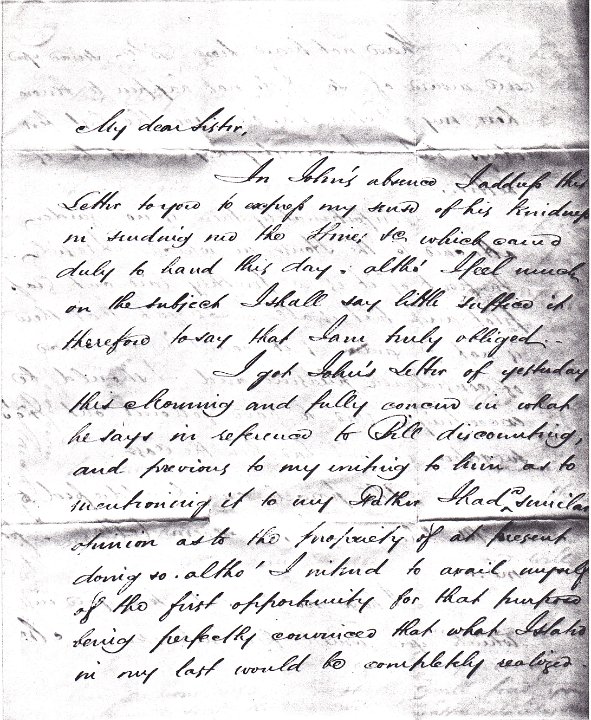 My dear Sister,
In John's absence I address this
Letter to you to express my sense of his kindness
in sending me the &c which came
duly to hand this day. altho' I feel much
on the subject I shall say little suffice it
therefore to say that I am truly obliged.
I got John's Letter of yesterday
this Morning and fully concur in what
he says in reference to Bill discounting,
and previous to my writing to him as to
mentioning it to my Father I had a similar
opinion as to the propriety of at present
doing so. altho' I intend to avail myself
of the first opportunity for that purpose
being perfectly convinced that what I state
in my last would be completely realized.